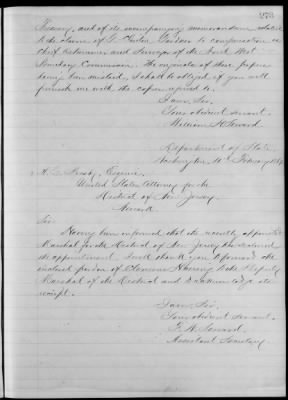 273
Treasury, and of its accompanying memorandum relative
to the claim of G. Clinton Gardner to compensation as
Chief Astronomer and Surveyor of the North West
Boundary Commission. The originals of these papers
being mislaid, I shall be obliged if you will
furnish me with the copies referred to.
I am, Sir,
Your obedient servant,
William H. Seward.
Department of State
Washington, 11th February
A. Q. Keasby, Esquire
United States Attorney for the
District of New Jersey,
Newark
Sir:
Having been informed that the recently appointed
Marshal for the District of New Jersey has declined
the appointment, I will thank you to forward the
enclosed pardon of Clarence to the Deputy
Marshal of the District and to acknowledge its
receipt.
I am, Sir,
Your obedient servant,
F. W. Seward.
Assistant Secretary